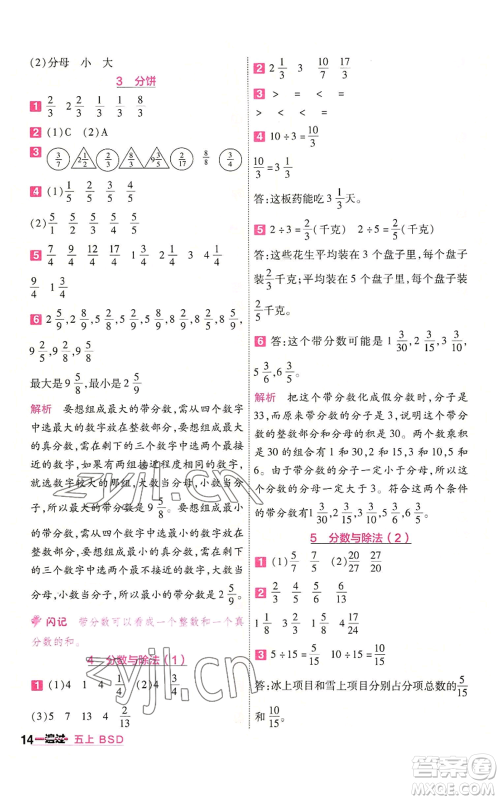 (2)分母 小 大
3 分饼
1 2/3 2 2/3 1/3 1/3 8/3
2 (1)C (2)A
3 3/7 2 1/2 3/5 9 3/5 2/17 8/8 3/4
4 (1) 1/5 1/5 4/5 4/5
(2) 1/5 4/5
5 7/4 9/4 12/4 17/4 1 3/4 2 1/4 3 4 1/4
9/4 1 1 3/4
6 2 5/9, 2 8/9, 5 2/9, 5 8/9, 8 2/9, 8 5/9, 9 2/5,
9 2/8, 9 5/8
最大是 9 5/8 最小是 2 5/9
解析 要想组成最大的带分数,需从四个数字
中选最大的数字放在整数部分,要想组成最大
的真分数,需在剩下的数字中选最接近的数字,
就选数字较大的那组,大数当分母,小数当分
子。要想组成最小的带分数,需从四个数字中
选最小的数字放在整数部分,要想组成最小的
真分数,需在剩下的数字中选相差最大的数字,
大数当分母,小数当分子,所以最小的是 2 5/9
闪记 带分数可以看成一个整数和一个真
分数的和。
4 分数与除法(1)
1 (1)4 1 4 1/4 (2)4 3/4
(3)7 5 4 2/13
14 一遍过 五上 BSD
2 2/3 1/3 10/7 17/3
3 > = < =
< < < >
4 10÷3=10/3
10/3=3 1/3
答:这板药能吃 3 1/3 天。
5 2÷3=2/3(千克) 2÷5=2/5(千克)
答:这些花生平均装在 3 个盘子里,每个盘子装
2/3 千克。平均装在 5 个盘子里,每个盘子装
2/5 千克。
6 答:这个带分数可能是 1 3/30, 2 3/15, 3 3/10,
5 3/6, 6 3/5。
解析 把这个带分数化成假分数时,分子是
33,而原来带分数的分数部分的分子是 3,说明
它的整数部分和分母的积是 30。两个数乘积
是 30 的有 1 和 30,2 和 15,3 和 10,5 和
6。由于带分数的分子一定小于分母,所以这个
带分数的分母一定大于 3。符合这两个条件的
带分数有 1 3/30, 2 3/15, 3 3/10, 5 3/6, 6 3/5。
5 分数与除法(2)
1 (1) 5/7 7/5 (2) 20/27 27/20
2 2/3 3/4 5/2 6/5 6/13
1/8 3/8 3/2 4/15 17/24
3 5÷15=5/15 10÷15=10/15
答:冰上项目和雪上项目分别占分项总数的 5/15
和 10/15。
zyjl.cn
zyjl.cn
作业精灵